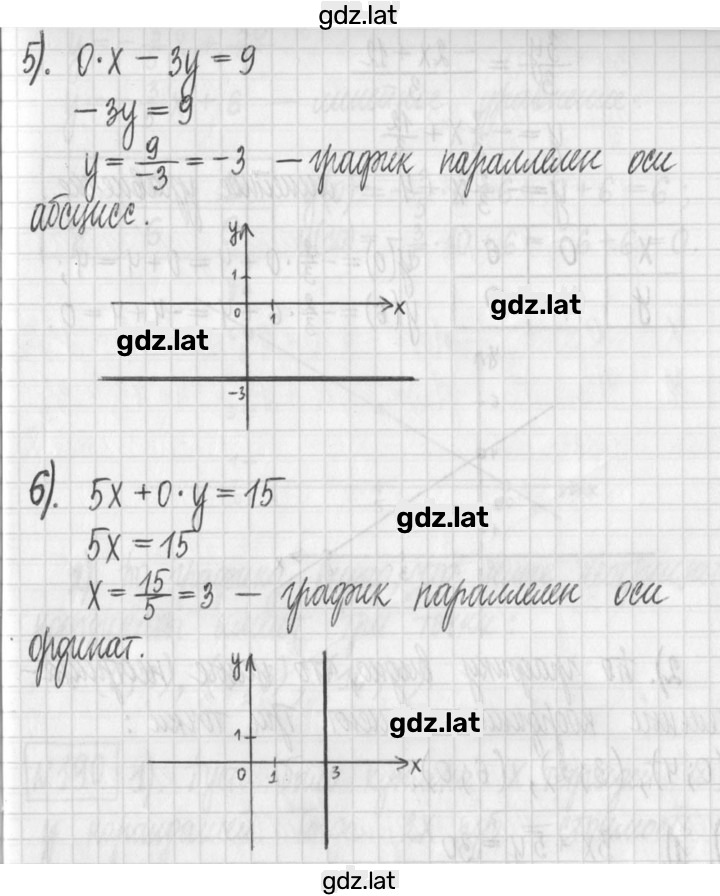 gdz.lat
5). 0·x − 3y = 9
−3y = 9
y = 9/−3 = −3 — график параллелен оси
абсцисс.
y
1
0 1 x
gdz.lat
gdz.lat
−3
6). 5x + 0·y = 15
gdz.lat
5x = 15
x = 15/5 = 3 — график параллелен оси
ординат.
y
gdz.lat
1
0 1 3 x
gdz.lat